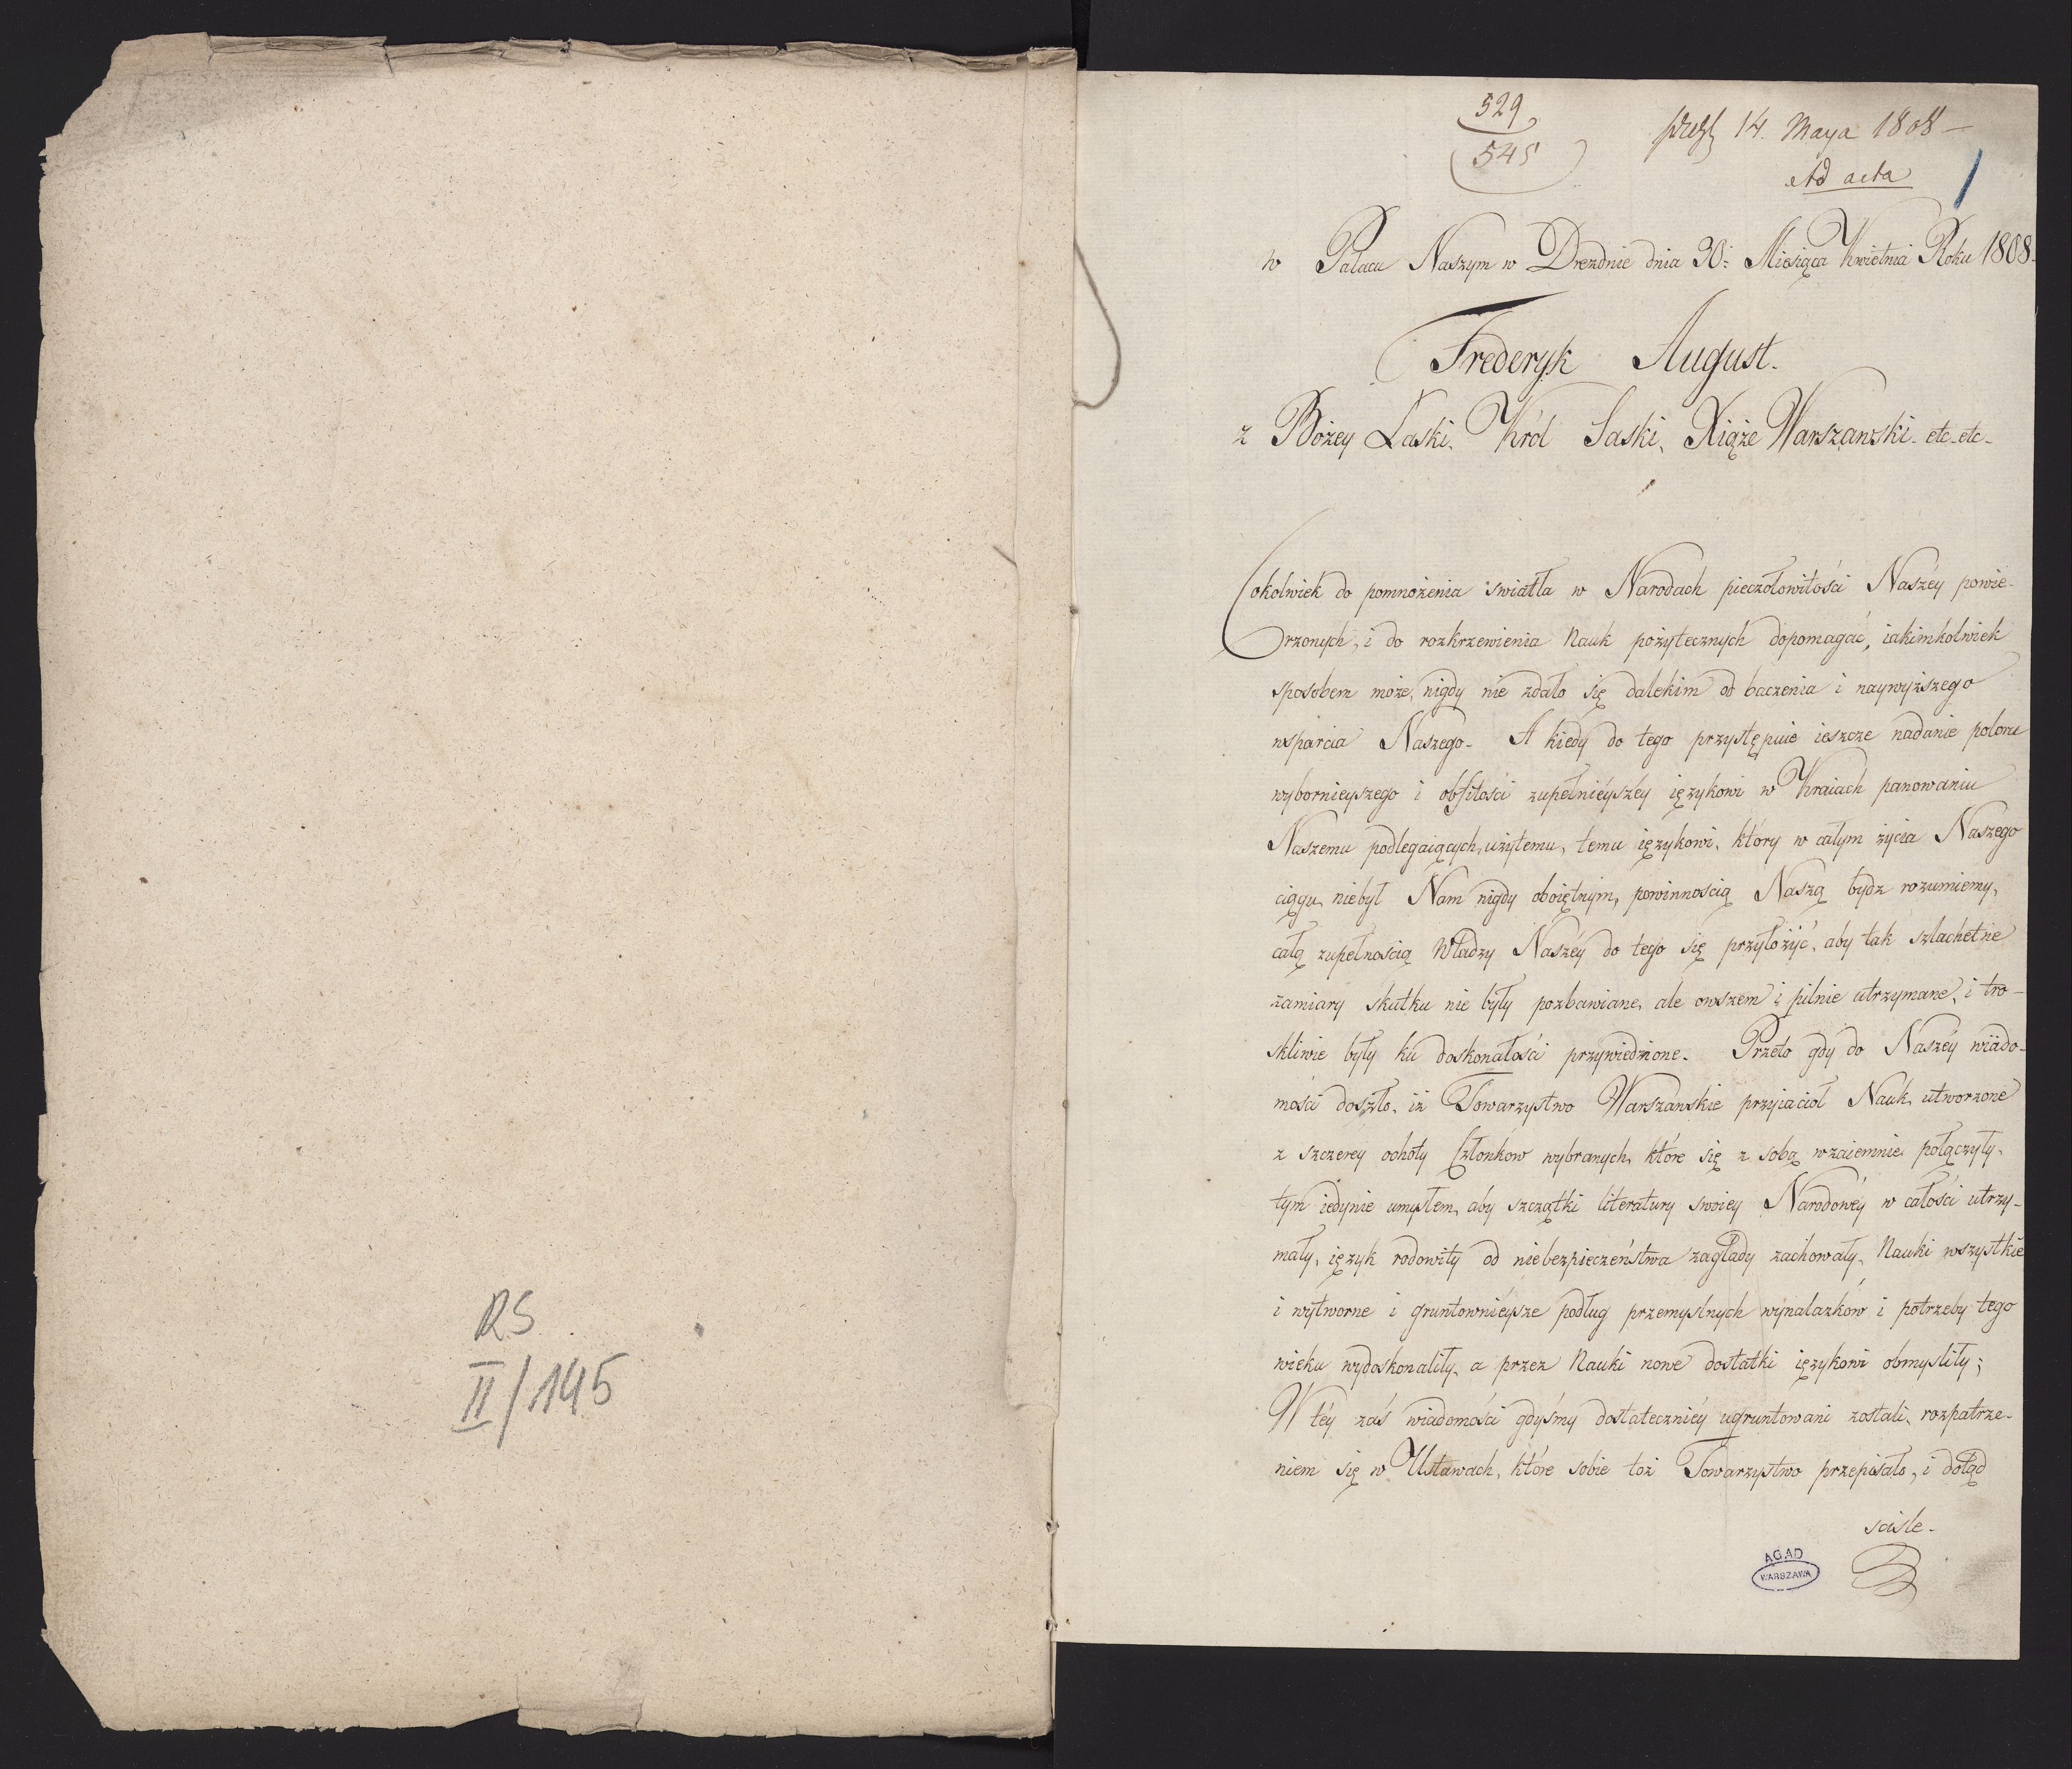 RS
II/145
529
545
14. Maya 1808 —
Ad acta
1
w Pałacu Naszym w Dreznie dnia 30: Miesiąca Kwietnia Roku 1808.
Frederyk August.
z Bożey Łaski, Król Saski, Xiąże Warszawski. etc. etc.
Cokolwiek do pomnożenia swiatła w Narodach pieczołowitości Naszéy powie-
rzonych, i do rozkrzewienia Nauk pożytecznych dopomagać, iakimkolwiek
sposobem może, nigdy nie zdało się dalekim od baczenia i naywyższego
wsparcia Naszego. A kiedy do tego przystępuie ieszcze nadanie poloru
wybornieyszego i obfitości zupełniéyszéy ięzykowi w Kraiach panowaniu
Naszemu podlegaiących, użytemu, temu ięzykowi, który w całym życia Naszego
ciągu, niebył Nam nigdy oboiętnym, powinnością Naszą bydz rozumiemy,
całą zupełnością Władzy Naszéy do tego się przyłożyć, aby tak szlachetne
zamiary skutku nie były pozbawiane, ale owszem i pilnie utrzymane, i tro-
skliwie były ku doskonałości przywiedzione. Przeto gdy do Naszéy wiado-
mości doszło, iż Towarzystwo Warszawskie przyiaciół Nauk, utworzone
z szczerey ochoty Członków wybranych, które się z sobą wzaiemnie połączyły,
tym iedynie umysłem, aby szczątki literatury swoiey Narodowéy w całości utrzy-
mały, ięzyk rodowity od niebezpieczeństwa zagłady zachowały, Nauki wszystkie
i wytworne i gruntowniéysze podług przemyslnych wynalazków i potrzeby tego
wieku wydoskonaliły, a przez Nauki nowe dostatki ięzykowi obmysliły;
W téy zaś wiadomości gdyśmy dostateczniéy ugruntowani zostali, rozpatrze-
niem się w Ustawach, które sobie toż Towarzystwo przepisało, i dotąd
scisle.
AGAD
WARSZAWA